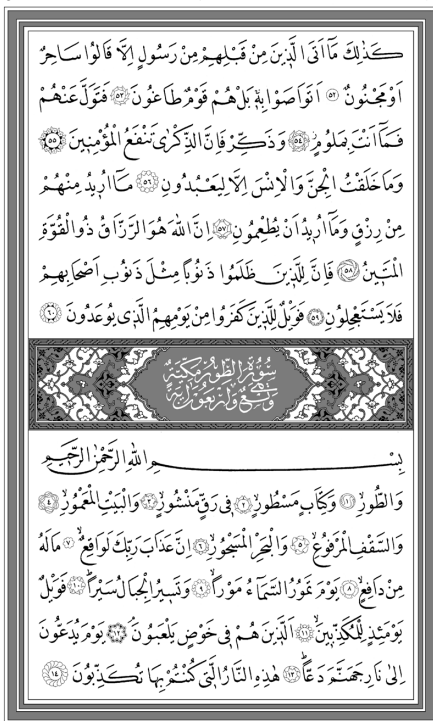 كَذٰلِكَ مَٓا اَتَى الَّذ۪ينَ مِنْ قَبْلِهِمْ مِنْ رَسُولٍ اِلَّا قَالُوا سَاحِرٌ
اَوْ مَجْنُونٌ ﴿٥٢﴾ اَتَوَاصَوْا بِه۪ۚ بَلْ هُمْ قَوْمٌ طَاغُونَ ﴿٥٣﴾ فَتَوَلَّ عَنْهُمْ
فَمَٓا اَنْتَ بِمَلُومٍ ﴿٥٤﴾ وَذَكِّرْ فَاِنَّ الذِّكْرٰى تَنْفَعُ الْمُؤْمِن۪ينَ ﴿٥٥﴾
وَمَا خَلَقْتُ الْجِنَّ وَالْاِنْسَ اِلَّا لِيَعْبُدُونِ ﴿٥٦﴾ مَٓا اُر۪يدُ مِنْهُمْ
مِنْ رِزْقٍ وَمَٓا اُر۪يدُ اَنْ يُطْعِمُونِ ﴿٥٧﴾ اِنَّ اللّٰهَ هُوَ الرَّزَّاقُ ذُو الْقُوَّةِ
الْمَت۪ينُ ﴿٥٨﴾ فَاِنَّ لِلَّذ۪ينَ ظَلَمُوا ذَنُوبًا مِثْلَ ذَنُوبِ اَصْحَابِهِمْ
فَلَا يَسْتَعْجِلُونِ ﴿٥٩﴾ فَوَيْلٌ لِلَّذ۪ينَ كَفَرُوا مِنْ يَوْمِهِمُ الَّذ۪ي يُوعَدُونَ ﴿٦٠﴾
سُورَةُ الطُّورِ مَكِّيَّةٌ
وَهِيَ تِسْعٌ وَاَرْبَعُونَ اٰيَةً
بِسْمِ اللّٰهِ الرَّحْمٰنِ الرَّح۪يمِ
وَالطُّورِۙ ﴿١﴾ وَكِتَابٍ مَسْطُورٍۙ ﴿٢﴾ ف۪ي رَقٍّ مَنْشُورٍۙ ﴿٣﴾ وَالْبَيْتِ الْمَعْمُورِۙ ﴿٤﴾
وَالسَّقْفِ الْمَرْفُوعِۙ ﴿٥﴾ وَالْبَحْرِ الْمَسْجُورِۙ ﴿٦﴾ اِنَّ عَذَابَ رَبِّكَ لَوَاقِعٌۙ ﴿٧﴾ مَا لَهُ
مِنْ دَافِعٍۙ ﴿٨﴾ يَوْمَ تَمُورُ السَّمَٓاءُ مَوْرًاۙ ﴿٩﴾ وَتَس۪يرُ الْجِبَالُ سَيْرًاۜ ﴿١٠﴾ فَوَيْلٌ
يَوْمَئِذٍ لِلْمُكَذِّب۪ينَۙ ﴿١١﴾ اَلَّذ۪ينَ هُمْ ف۪ي خَوْضٍ يَلْعَبُونَۢ ﴿١٢﴾ يَوْمَ يُدَعُّونَ
اِلٰى نَارِ جَهَنَّمَ دَعًّاۜ ﴿١٣﴾ هٰذِهِ النَّارُ الَّت۪ي كُنْتُمْ بِهَا تُكَذِّبُونَ ﴿١٤﴾